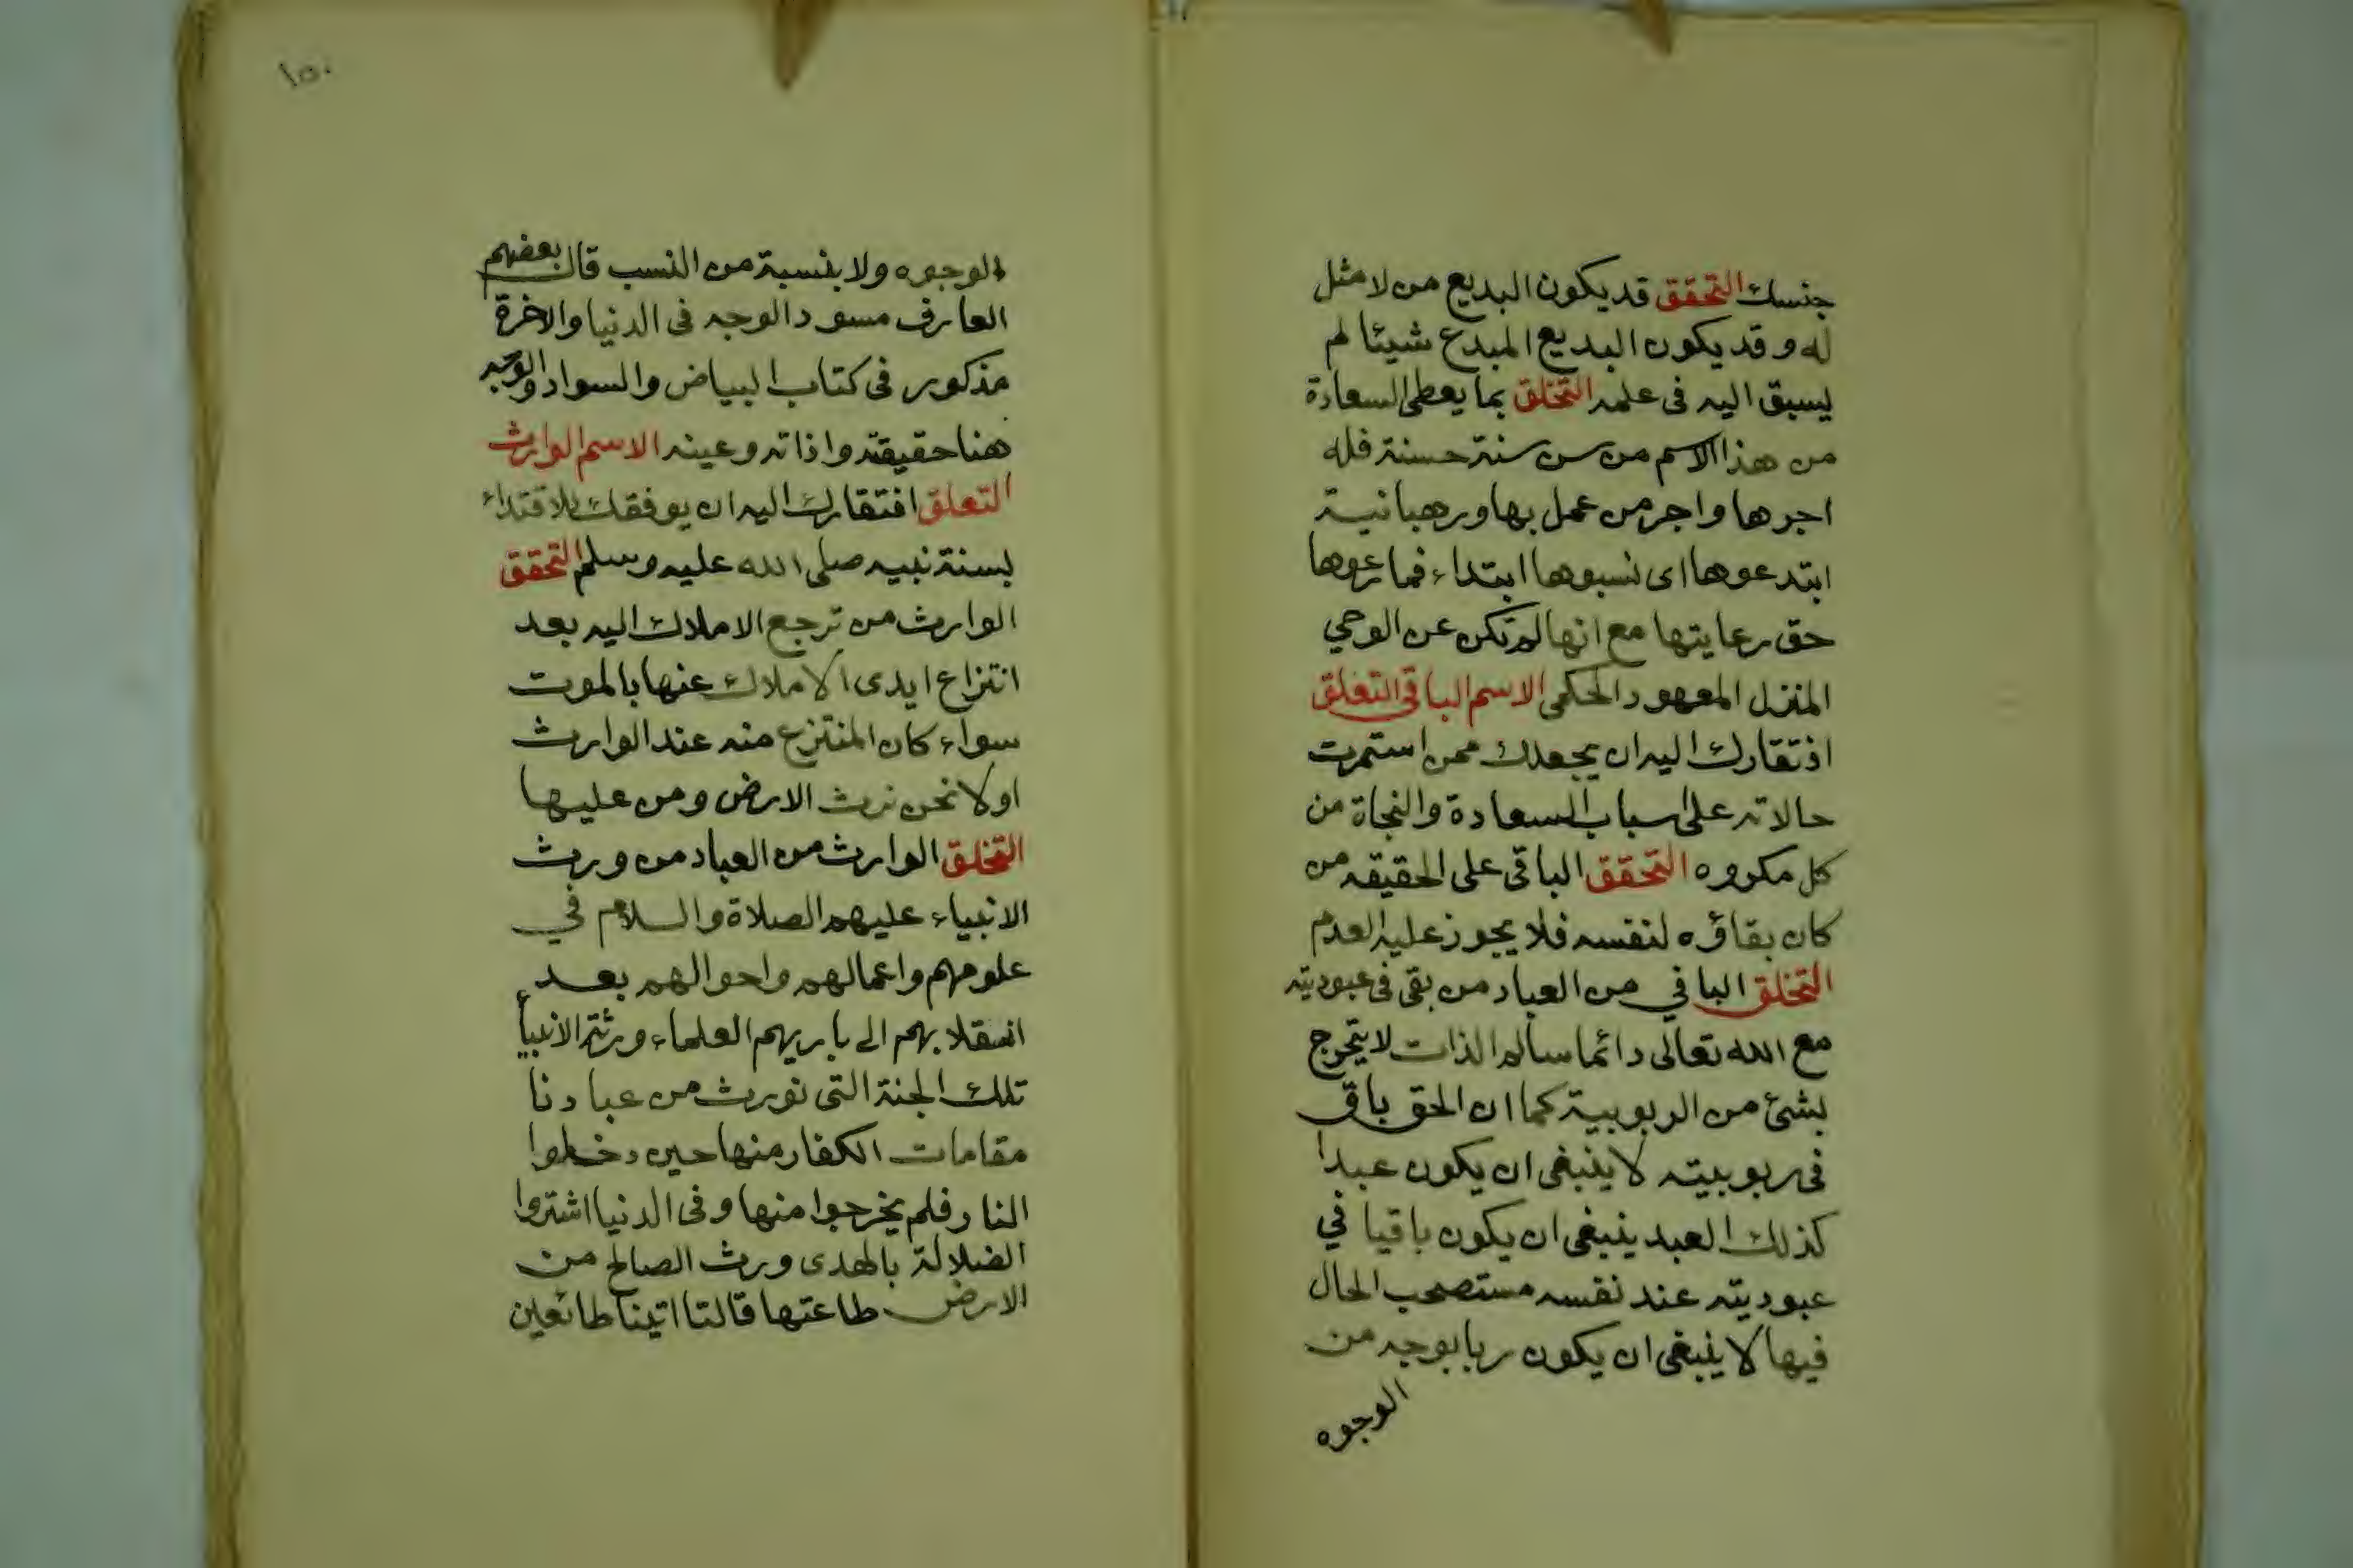 جنسك التحقق قد يكون البديع من لا مثل
له وقد يكون البديع المبدع شيئا لم
يسبق اليه فى علمه التخلق بما يعطى السعادة
من هذا الاسم من سن سنة حسنة فله
اجرها واجر من عمل بها ورهبانية
ابتدعوها اى نسبوها ابتداء فما رعوها
حق رعايتها مع انها لم تكن عن الوحي
المنزل المعهود الحكمى الاسم الباقى التعلق
افتقارك اليه ان يجعلك ممن استمرت
حالاته على اسباب السعادة والنجاة من
كل مكروه التحقق الباقى على الحقيقه من
كان بقاؤه لنفسه فلا يجوز عليه العدم
التخلق الباقي من العباد من بقى فى عبوديته
مع الله تعالى دائما سالم الذات لا يتجرج
بشئ من الربوبية كما ان الحق باق
فى ربوبيته لا ينبغى ان يكون عبدا
كذلك العبد ينبغى ان يكون باقيا في
عبوديته عند نفسه مستصحب الحال
فيها لا ينبغى ان يكون ربا بوجه من
الوجوه
١٥٠
الوجوه ولا بنسبة من النسب قال بعضهم
العارف مسود الوجه فى الدنيا والاخرة
مذكور فى كتاب البياض والسواد والوجه
هنا حقيقته وذاته وعينه الاسم الوارث
التعلق افتقارك اليه ان يوفقك للاقتداء
بسنة نبيه صلى الله عليه وسلم التحقق
الوارث من ترجع الاملاك اليه بعد
انتزاع ايدى الاملاك عنها بالموت
سواء كان المنتزع منه عند الوارث
اولا نحن نرث الارض ومن عليها
التخلق الوارث من العباد من ورث
الانبياء عليهم الصلاة والسلام في
علومهم واعمالهم واحوالهم بعد
انقلابهم الى باريهم العلماء ورثة الانبياء
تلك الجنة التى نورث من عبادنا
مقامات الكفار منها حين دخلوا
النار فلم يخرجوا منها وفى الدنيا اشتروا
الضلالة بالهدى ورث الصالح من
الارض طاعتها قالتا اتينا طائعين